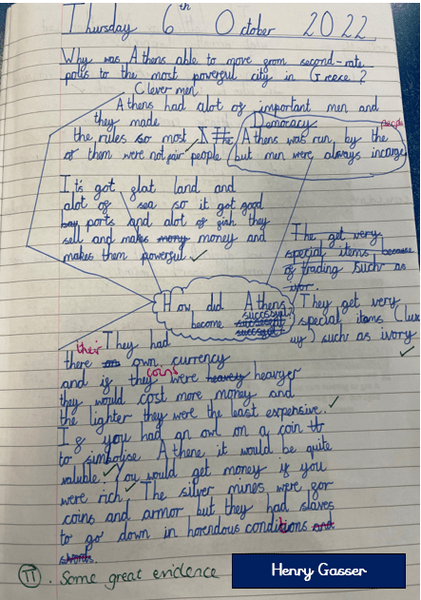 Thursday 6th October 2022
Why was Athens able to move from second-rate
polis to the most powerful city in Greece?
Clever men
Athens had alot of important men and
they made
the rules so most
of them were not fair people
Democracy
Athens was run by the people
but men were always incarge
It's got flat land and
alot of sea so it got good
ports and alot of fish they
sell and make money and
makes them powerful
The get very
special items because
of trading such as
How did Athens
become successful
They get very
special items (lux
ury) such as ivory
They had
there their own currency
and if they coins were heavyer
they would cost more money and
the lighter they were the least expensive.
If you had an owl on a coin
to simbolise Athene it would be quite
valuble. You would get money if you
were rich. The silver mines were for
coins and armor but they had slaves
to go down in horendous conditions and
swords.
TT. Some great evidence
Henry Gasser